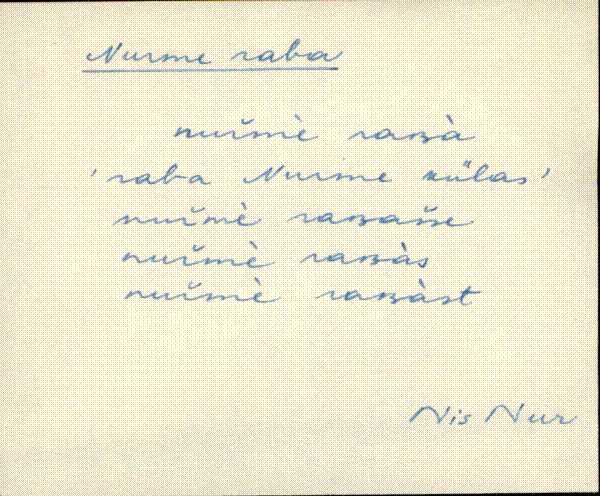 Nurme raba
nuřmè raʙà
'raba Nurme külas'
nuřmè raʙašše
nuřmè raʙàs
nuřmè raʙàst
Nis Nur